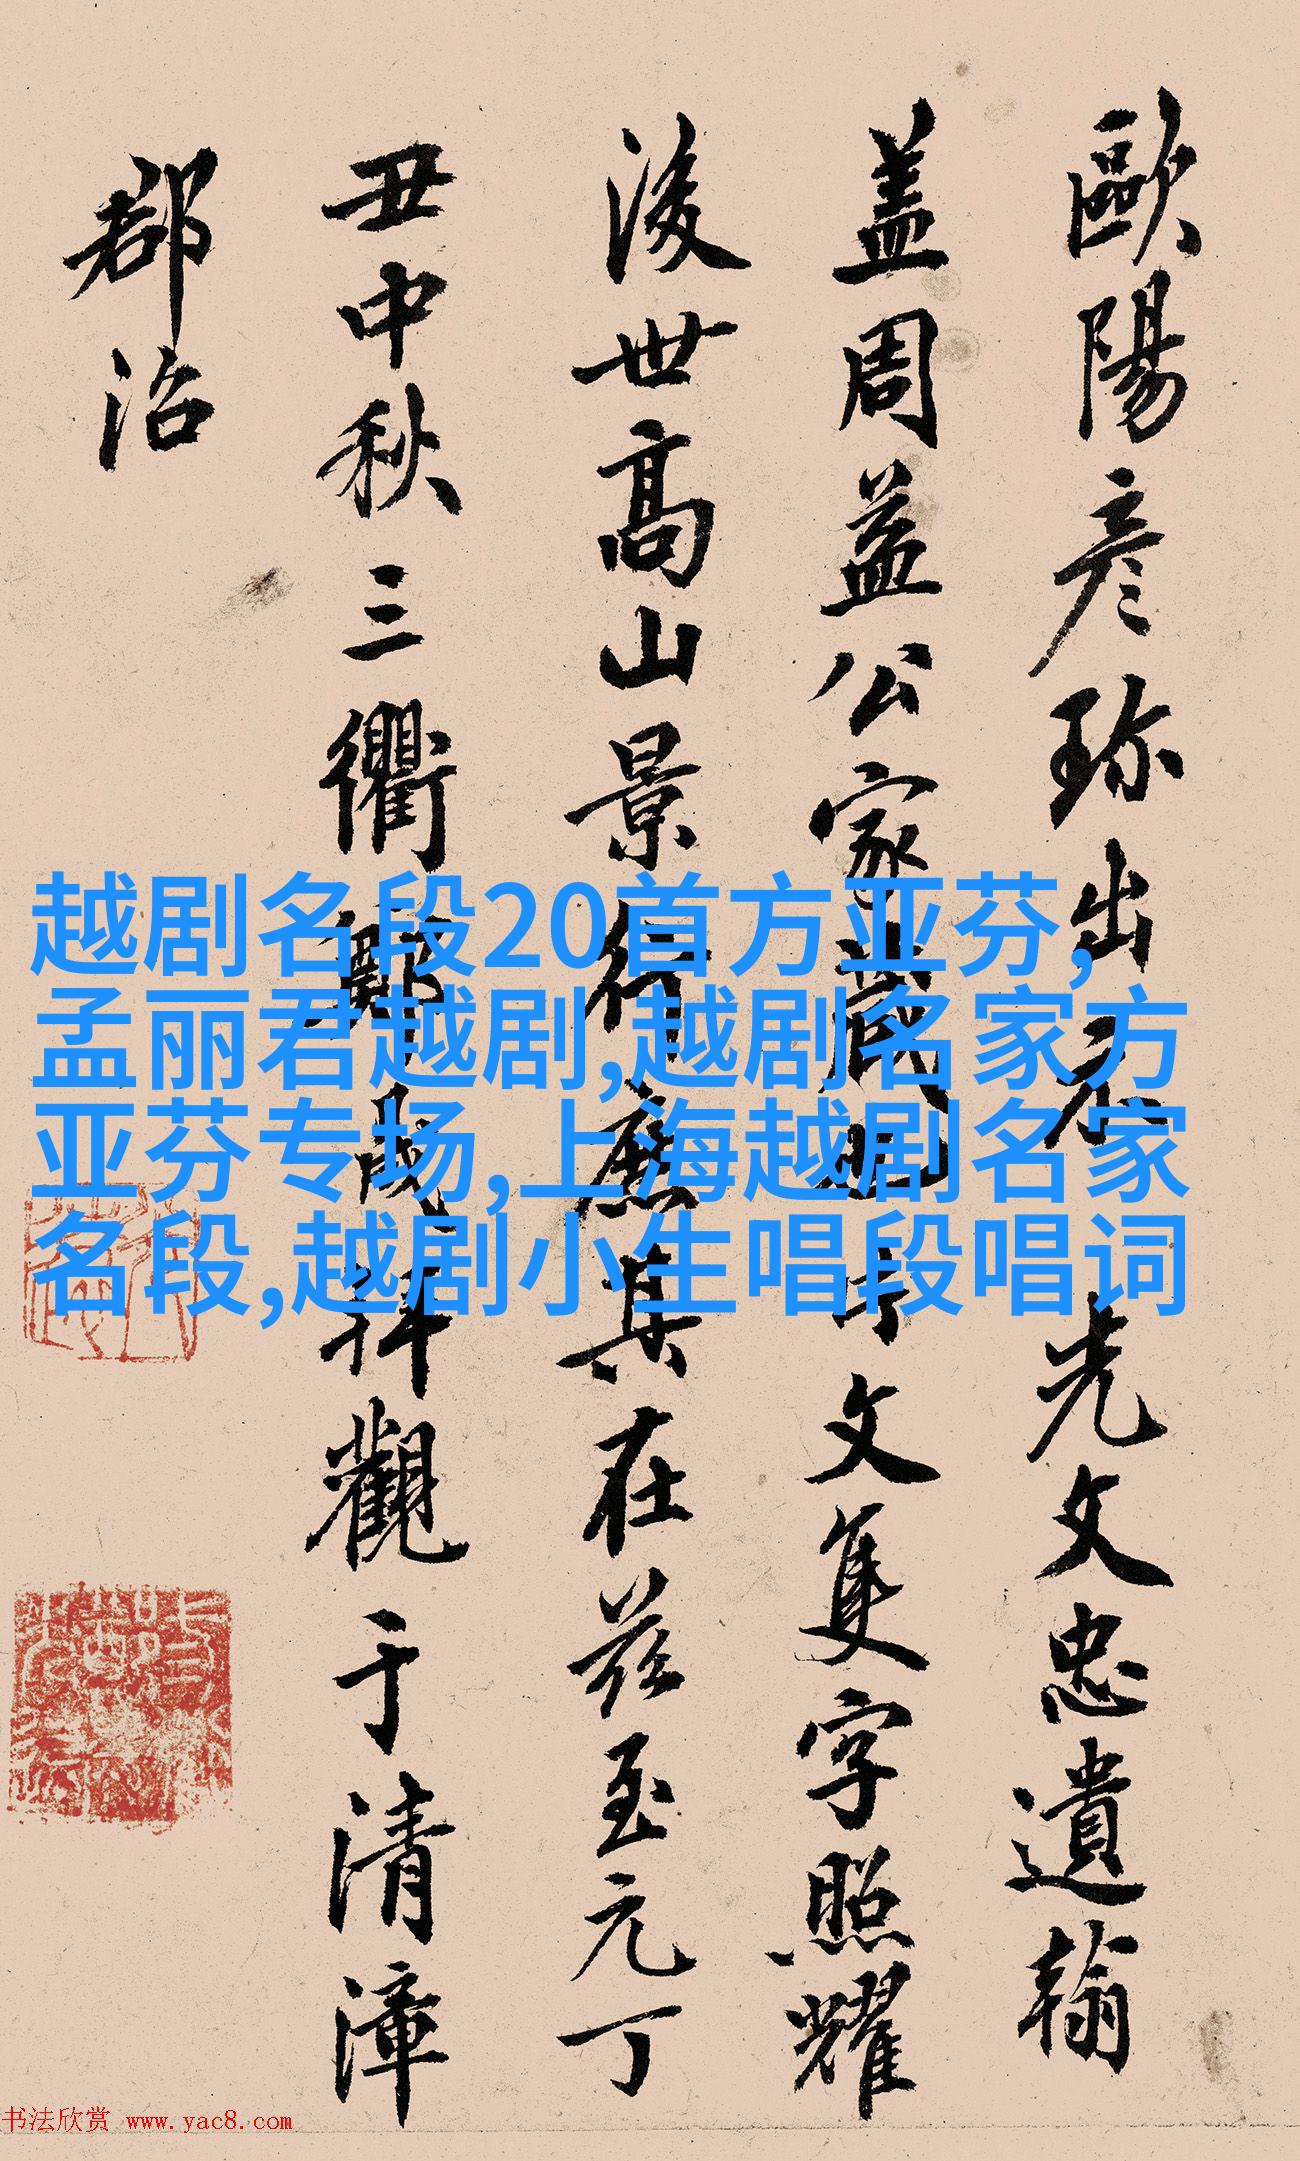 歐陽彥珎出示先文忠遺翰
盖周益公家藏片文隻字照耀
後世高山景行庶其在兹至元丁
丑中秋三衢鄭拜觀于清漳
郡治
越剧名段20首方亚芬,
孟丽君越剧,越剧名家方
亚芬专场,上海越剧名家
名段,越剧小生唱段唱词
书法欣赏 www.yac8.com